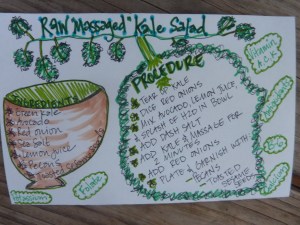 RAW "Massaged" Kale Salad
INGREDIENTS
Green Kale
Avocado
Red onion
Sea Salt
Lemon Juice
Pecans
PROCEDURE
TEAR UP KALE
DICE RED ONIONS
MIX AVOCADO, LEMON JUICE,
SPLASH OF H2O IN BOWL
ADD DASH SALT
ADD KALE & MASSAGE FOR
2 MINUTES
ADD RED ONIONS
PLATE & GARNISH WITH:
PECANS
TOASTED
SESAME
SEEDS
Vitamin
A, C, K
Folate